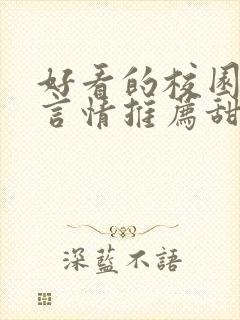 好看的校园
言情推荐甜
深藍不語